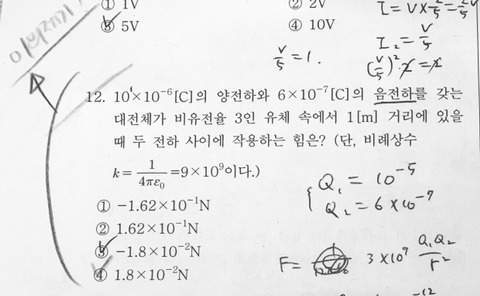 ① 1V ② 2V
⑤ 5V ④ 10V
V/5 = 1.
I₂ = V/5
12. 10×10⁻⁶[C]의 양전하와 6×10⁻⁷[C]의 음전하를 갖는
대전체가 비유전율 3인 유체 속에서 1[m] 거리에 있을
때 두 전하 사이에 작용하는 힘은? (단, 비례상수
k = 1/4πε₀ = 9×10⁹이다.)
① −1.62×10⁻¹N
② 1.62×10⁻¹N
③ −1.8×10⁻²N
④ 1.8×10⁻²N
Q₁ = 10⁻⁵
Q₂ = 6×10⁻⁷
F = 3×10⁹ Q₁Q₂/r²